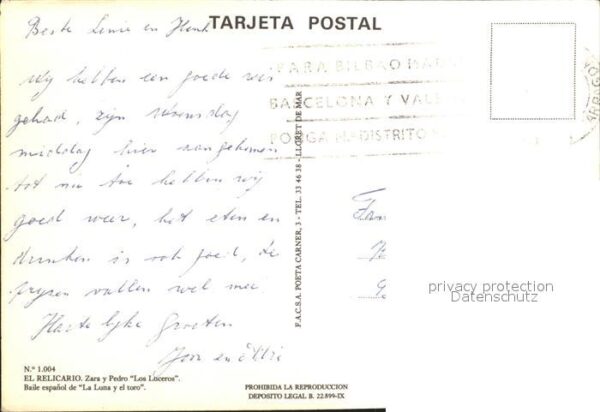 TARJETA POSTAL
Beste Lenie en Henk
Wij hebben een goede reis
gehad, zijn
middag hier aangekomen
tot nu toe hebben wij
goed weer, het eten en
drinken is ook goed, de
pryzen vallen wel mee
Hartelyke Groeten
Joop en
PARA BILBAO MADRI
BARCELONA Y VALE
PONGA DISTRITO
F.A.C.S.A. POETA CARNER, 3 - TEL. 33 46 38 - LLORET DE MAR
Fam
privacy protection
Datenschutz
N.º 1.004
EL RELICARIO. Zara y Pedro "Los Lisceros".
Baile español de "La Luna y el toro".
PROHIBIDA LA REPRODUCCION
DEPOSITO LEGAL B. 22.899-IX